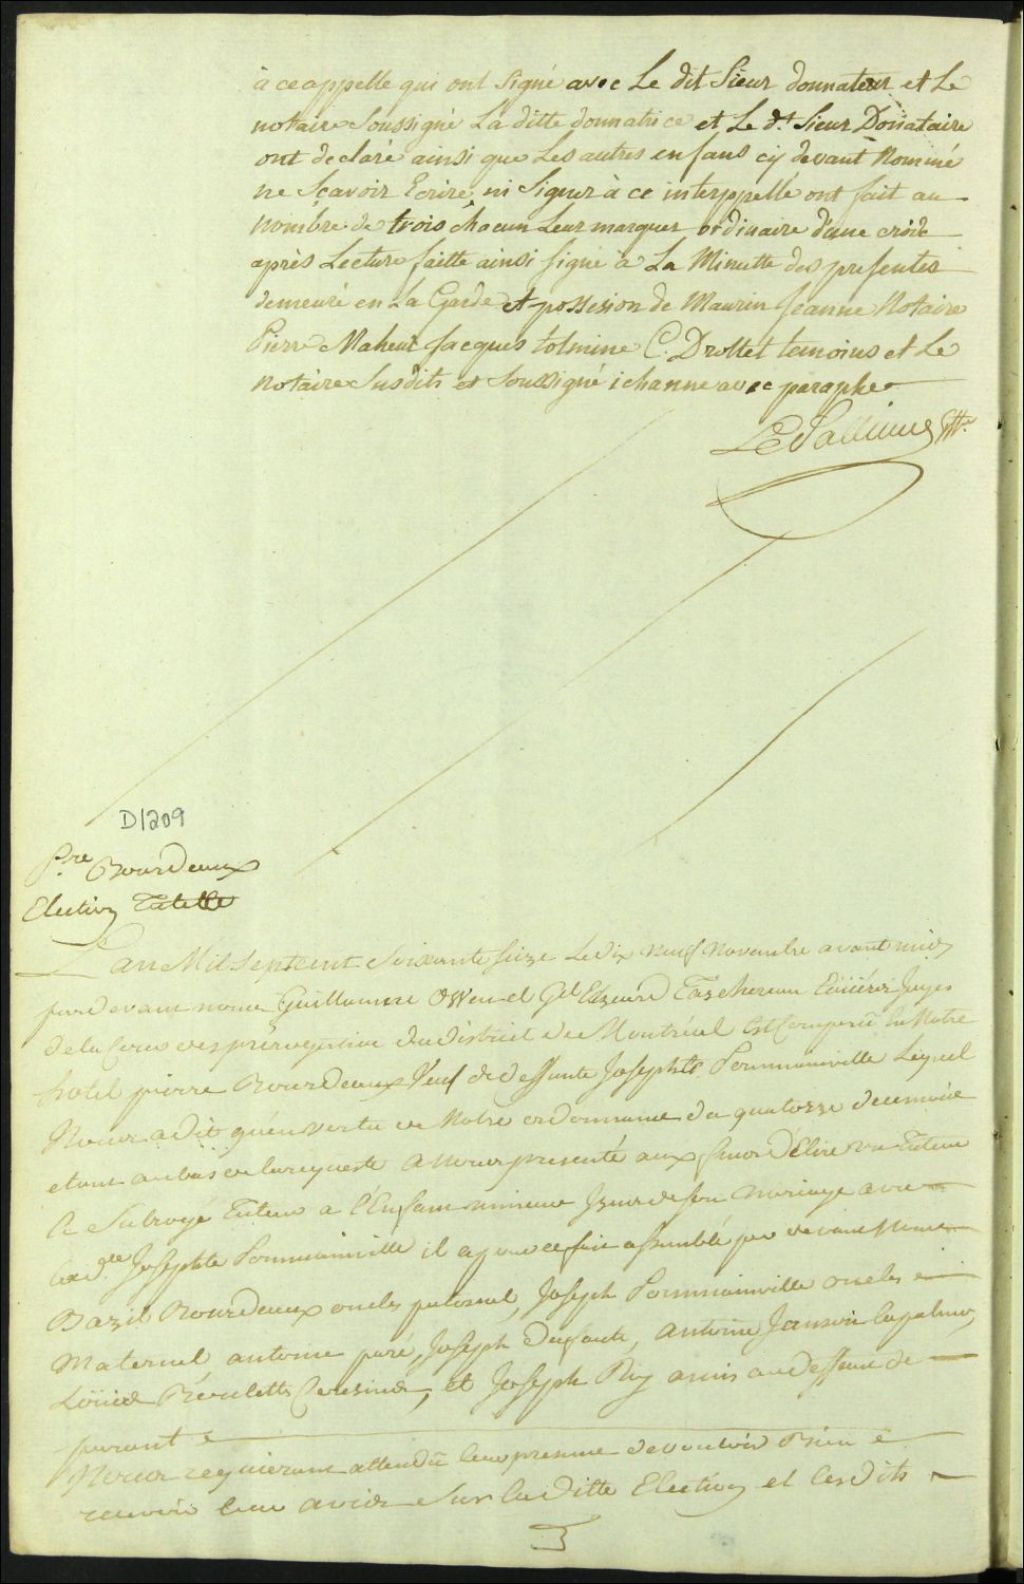 à ce appellé qui ont Signé avec Le dit Sieur donnateur et Le
notaire Soussigné La ditte donnatrice et Le dt. Sieur Donataire
ont declaré ainsi que Les autres enfans cy devant Nommé
ne Scavoir Ecrire, ni Signer à ce interppellé ont fait au
nombre de trois chacun Leur marques ordinaire d'une croix
après Lecture faitte ainsi signé à La Minutte des presentes
demeuré en La Garde et possesion de Maurin Jeanne Notaire
Pierre Maheux Jacques tolmine C. Drollet temoins et Le
notaire Susdits et Soussigné avec paraphe
D1209
P.re Bourdeaux
Election Tutelle
L'an Mil Septcent Soixante Seize Le dix neuf Novembre avant midy
pardevant nous Guillaume Owen et Gl. Elzeard Taschereau Juges
de la Cour des prerogative du district de Montréal Est Comparu En Notre
hotel pierre Bourdeaux Veuf de deffunte Josephte Pommainville Lequel
Nous a dit qu'en vertu de Notre ordonnance du quatorze
etant au bas de la requeste a Nous presenté aux fins D'Elire un Tuteur
& Subrogé Tuteur a l'Enfant mineur Issus de son Mariage avec
La de. Josephte Pommainville il a fait assemblé par devant Nous
Bazil Bourdeaux oncles paternel, Joseph Pommainville oncles
Maternel antoine paré, Joseph, Antoine Lapalme,
Louis, et Joseph Roy amis au deffaut de
parant
Nous requierant attendu leur presence de vouloir Bien
recevoir leur avis Sur La ditte Election et Lesdits